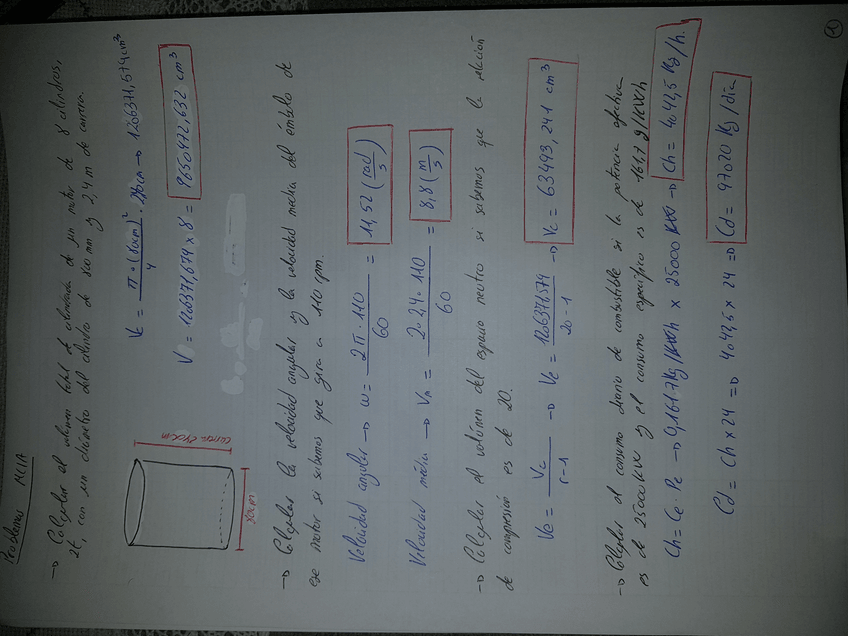 Problemas MCIA
①
→ Calcular el volumen total de cilindrada de un motor de 8 cilindros,
2t, con un diámetro del cilindro de 800 mm y 2,4 m de carrera.
carrera 240cm
80cm
Vc = π · (80cm)² / 4 · 240cm → 1206371,579cm³
V = 1206371,579 x 8 = 9650972,632 cm³
→ Calcular la velocidad angular y la velocidad media del émbolo de
ese motor si sabemos que gira a 110 rpm.
Velocidad angular → ω = 2π · 110 / 60 = 11,52 (rad/s)
Velocidad media → Vm = 2 · 2,4 · 110 / 60 = 8,8 (m/s)
→ Calcular el volúmen del espacio neutro si sabemos que la relación
de compresión es de 20.
Ve = Vc / r-1 → Ve = 1206371,579 / 20-1 → Ve = 63493,241 cm³
→ Calcular el consumo diario de combustible si la potencia efectiva
es de 25000 KW y el consumo específico es de 161,7 g/KWh
Ch = Ce · Pe → 0,1617 Kg/KWh x 25000 KW → Ch = 4042,5 Kg/h.
Cd = Ch x 24 ⇒ 4042,5 x 24 ⇒ Cd = 97020 Kg/día